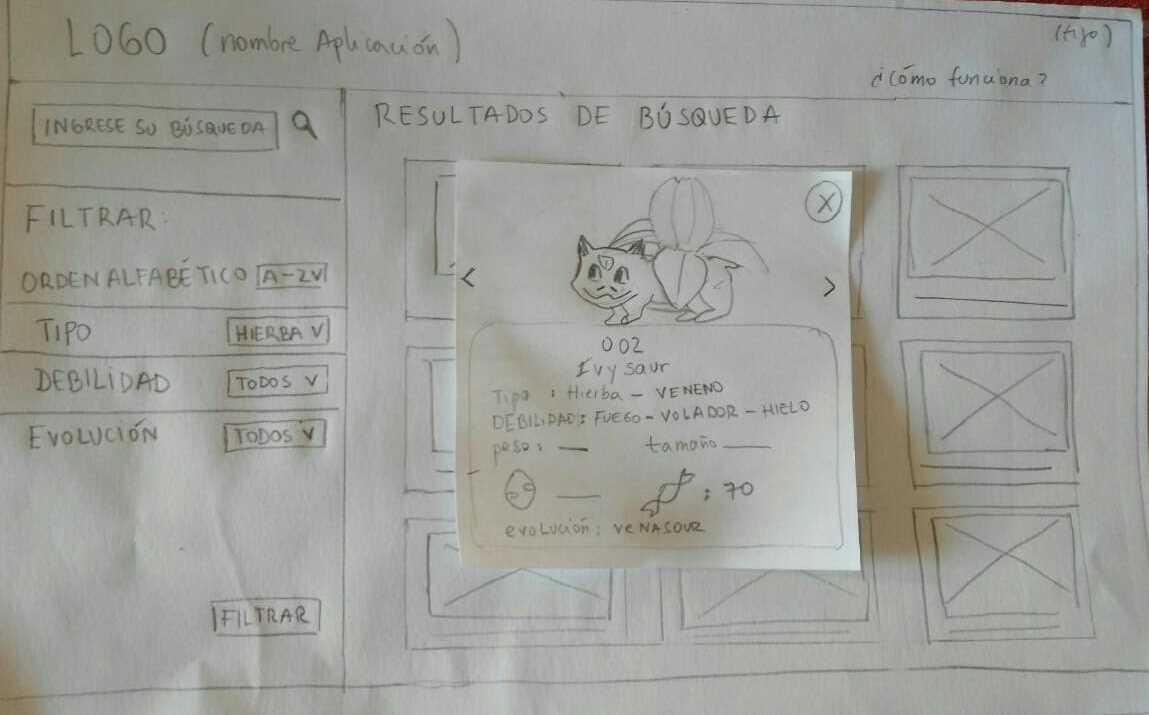 LOGO (nombre Aplicación)
(fijo)
¿Cómo funciona?
INGRESE SU BÚSQUEDA
RESULTADOS DE BÚSQUEDA
FILTRAR:
ORDEN ALFABÉTICO A-Z V
TIPO HIERBA V
DEBILIDAD TODOS V
EVOLUCIÓN TODOS V
FILTRAR
X
< >
002
Ivysaur
Tipo : Hierba - VENENO
DEBILIDAD: FUEGO - VOLADOR - HIELO
peso: __ tamaño __
__ : 70
evolución: VENASOUR